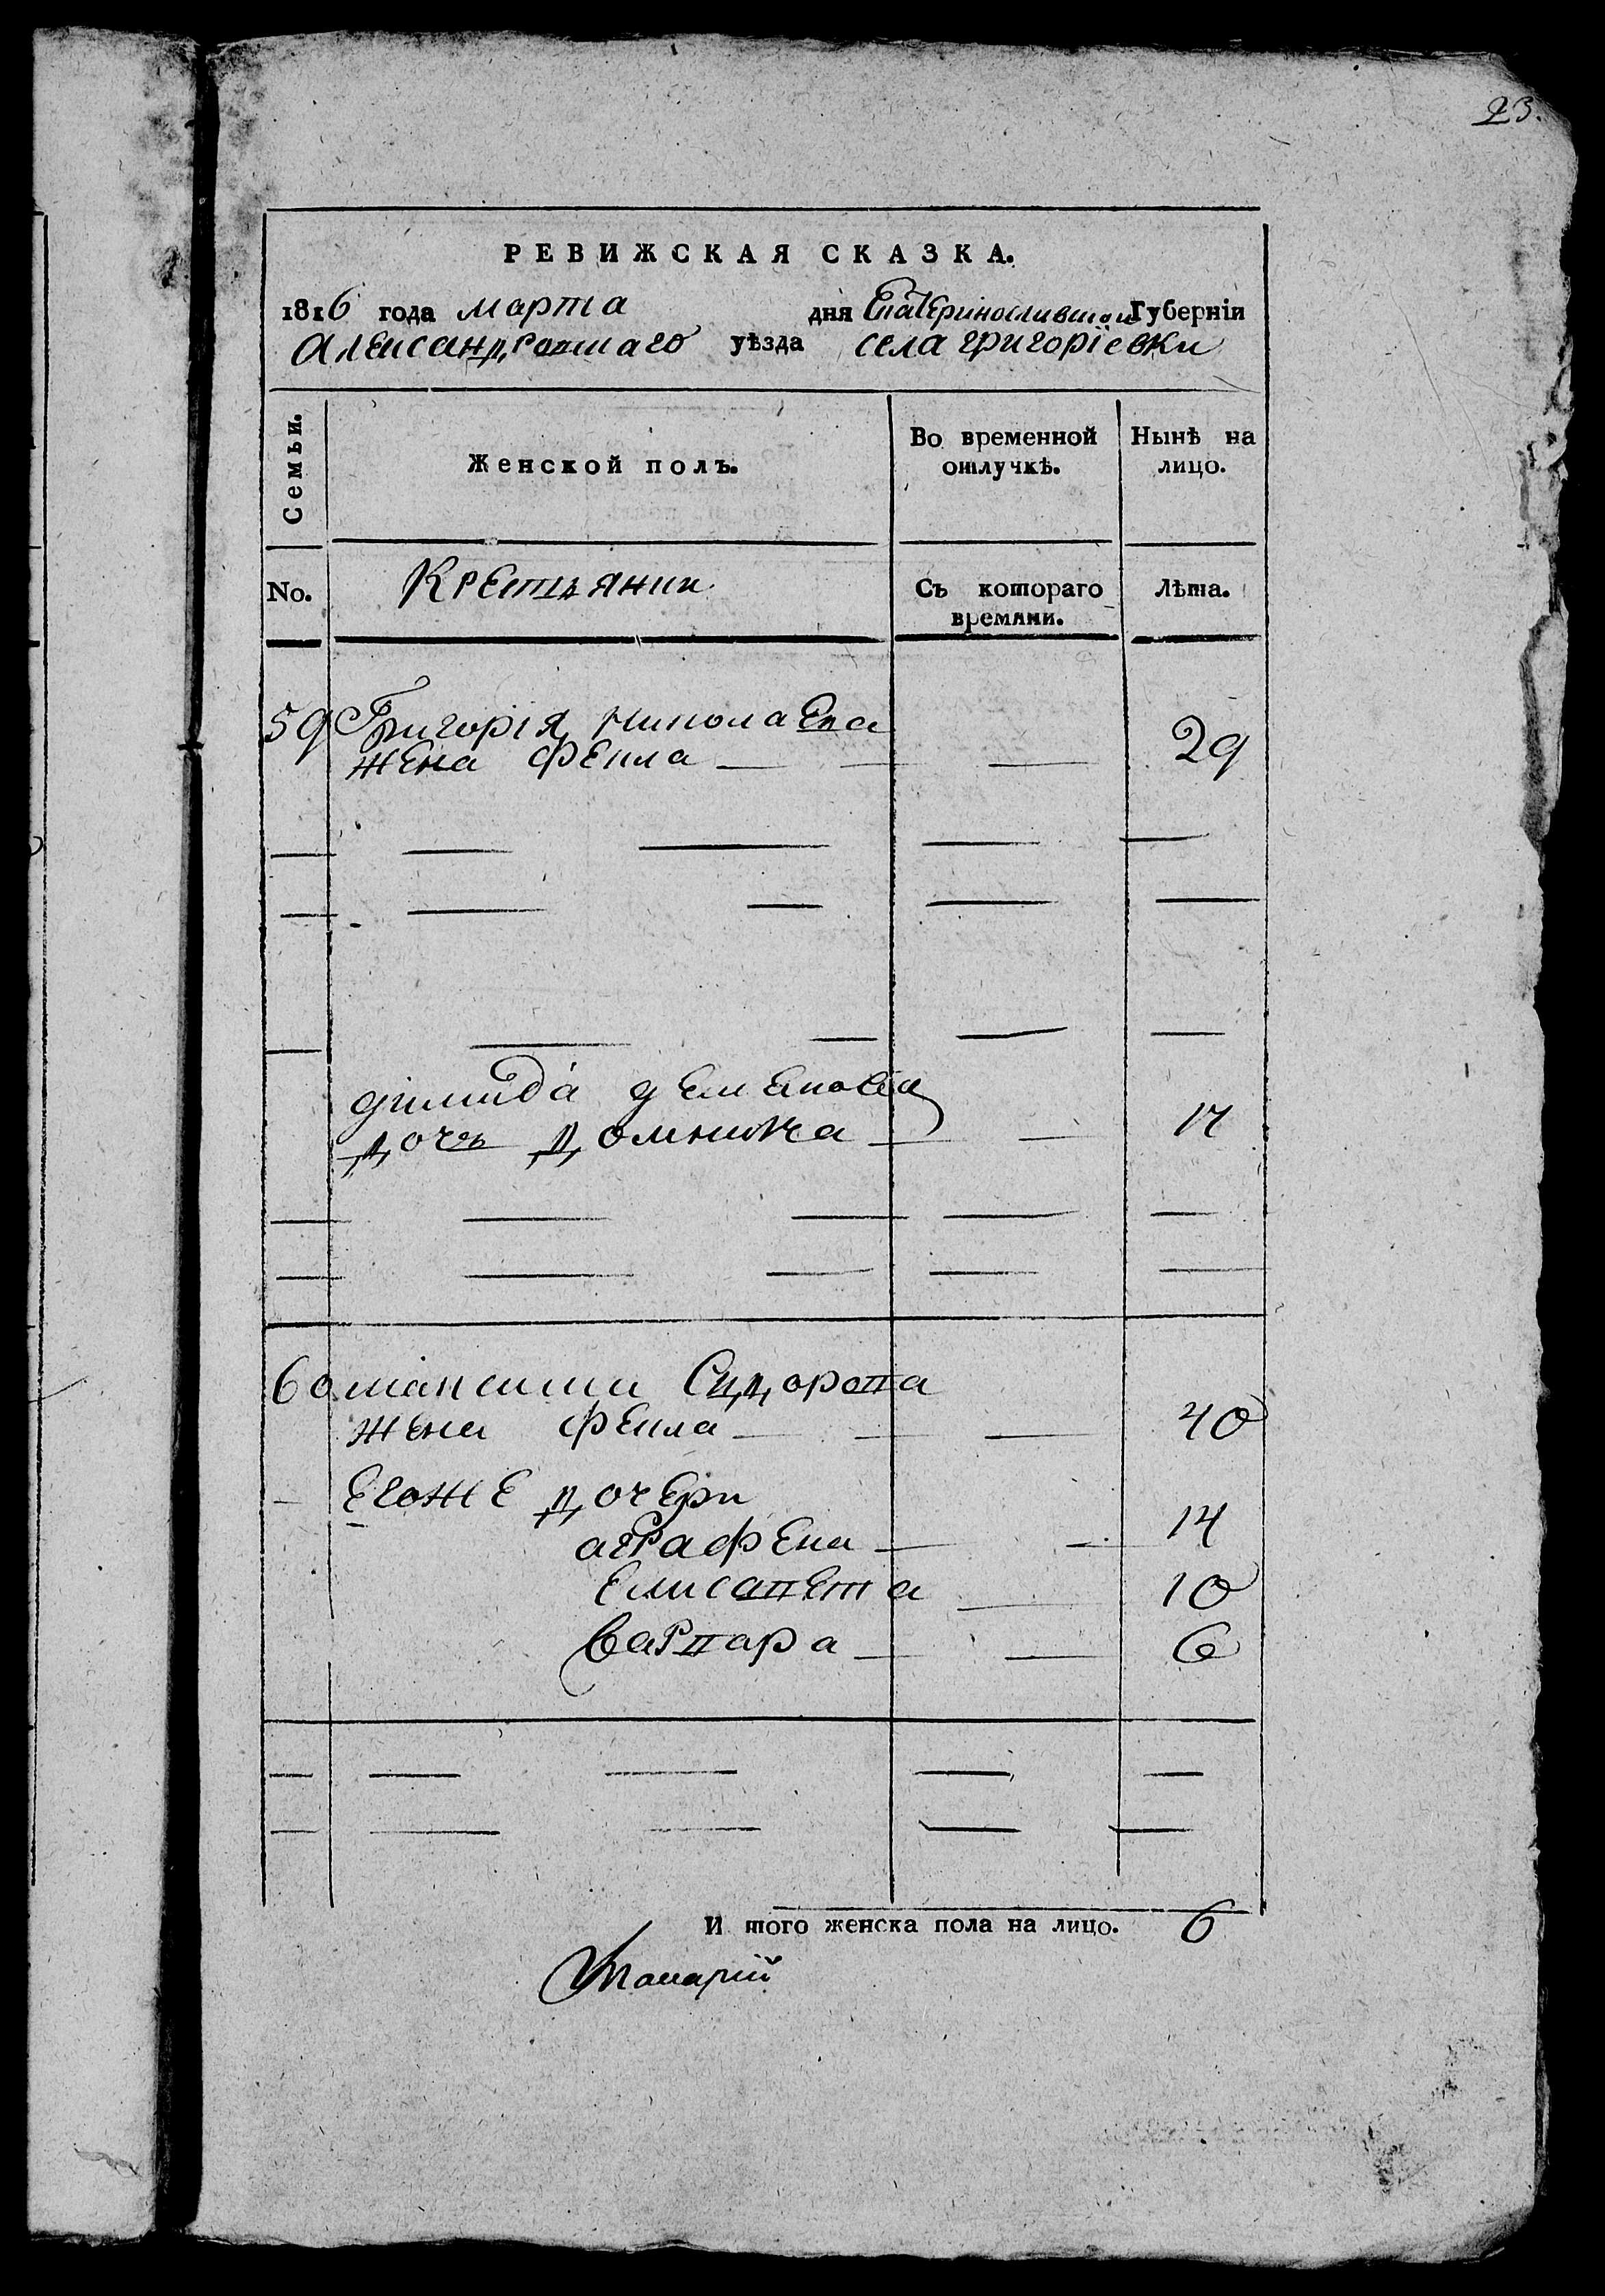 23.
РЕВИЖСКАЯ СКАЗКА.
1816 года марта дня Екатеринославской Губерніи
Александровскаго уѣзда села григоріевки
Семьи.
Женской полъ.
Во временной отлучкѣ.
Нынѣ на лицо.
No.
Крестьянки
Съ котораго времяни.
Лѣта.
59 Григорія Николаева
жена Фекла 29
дочь Домникіа
60 максима Сидорова
жена фекла 40
Егоже дочери
аграфена 14
Елисавета 10
варвара 6
И того женска пола на лицо. 6